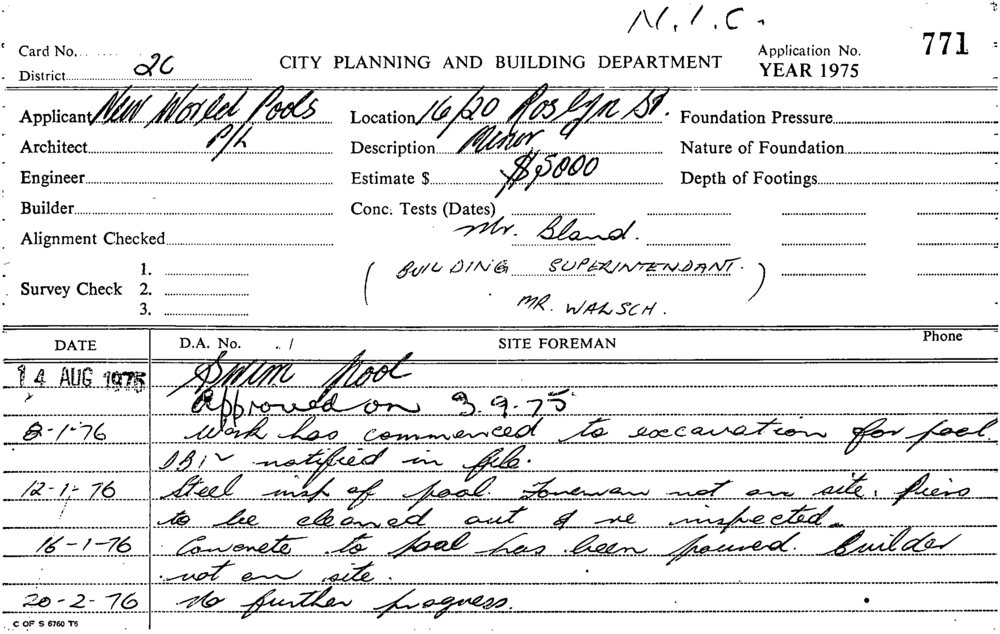 N.I.C.
Card No.
Application No. 771
District 2C
CITY PLANNING AND BUILDING DEPARTMENT
YEAR 1975
Applicant New World Pools Location 16/20 Roslyn St. Foundation Pressure
Architect P/L Description Minor Nature of Foundation
Engineer Estimate $ $5000 Depth of Footings
Builder Conc. Tests (Dates)
Alignment Checked Mr. Bland.
1.
(BUILDING SUPERINTENDANT.)
Survey Check 2.
MR. WALSCH.
3.
DATE D.A. No. / SITE FOREMAN Phone
14 AUG 1975 Swim Pool
Approved on 3.9.75
8-1-76 Work has commenced to excavation for pool
notified in file.
12-1-76 Steel insp of pool. Foreman not on site. Piers
to be cleaned out & re inspected.
16-1-76 Concrete to pool has been poured. Builder
not on site.
20-2-76 No further progress.
C OF S 6760 T6